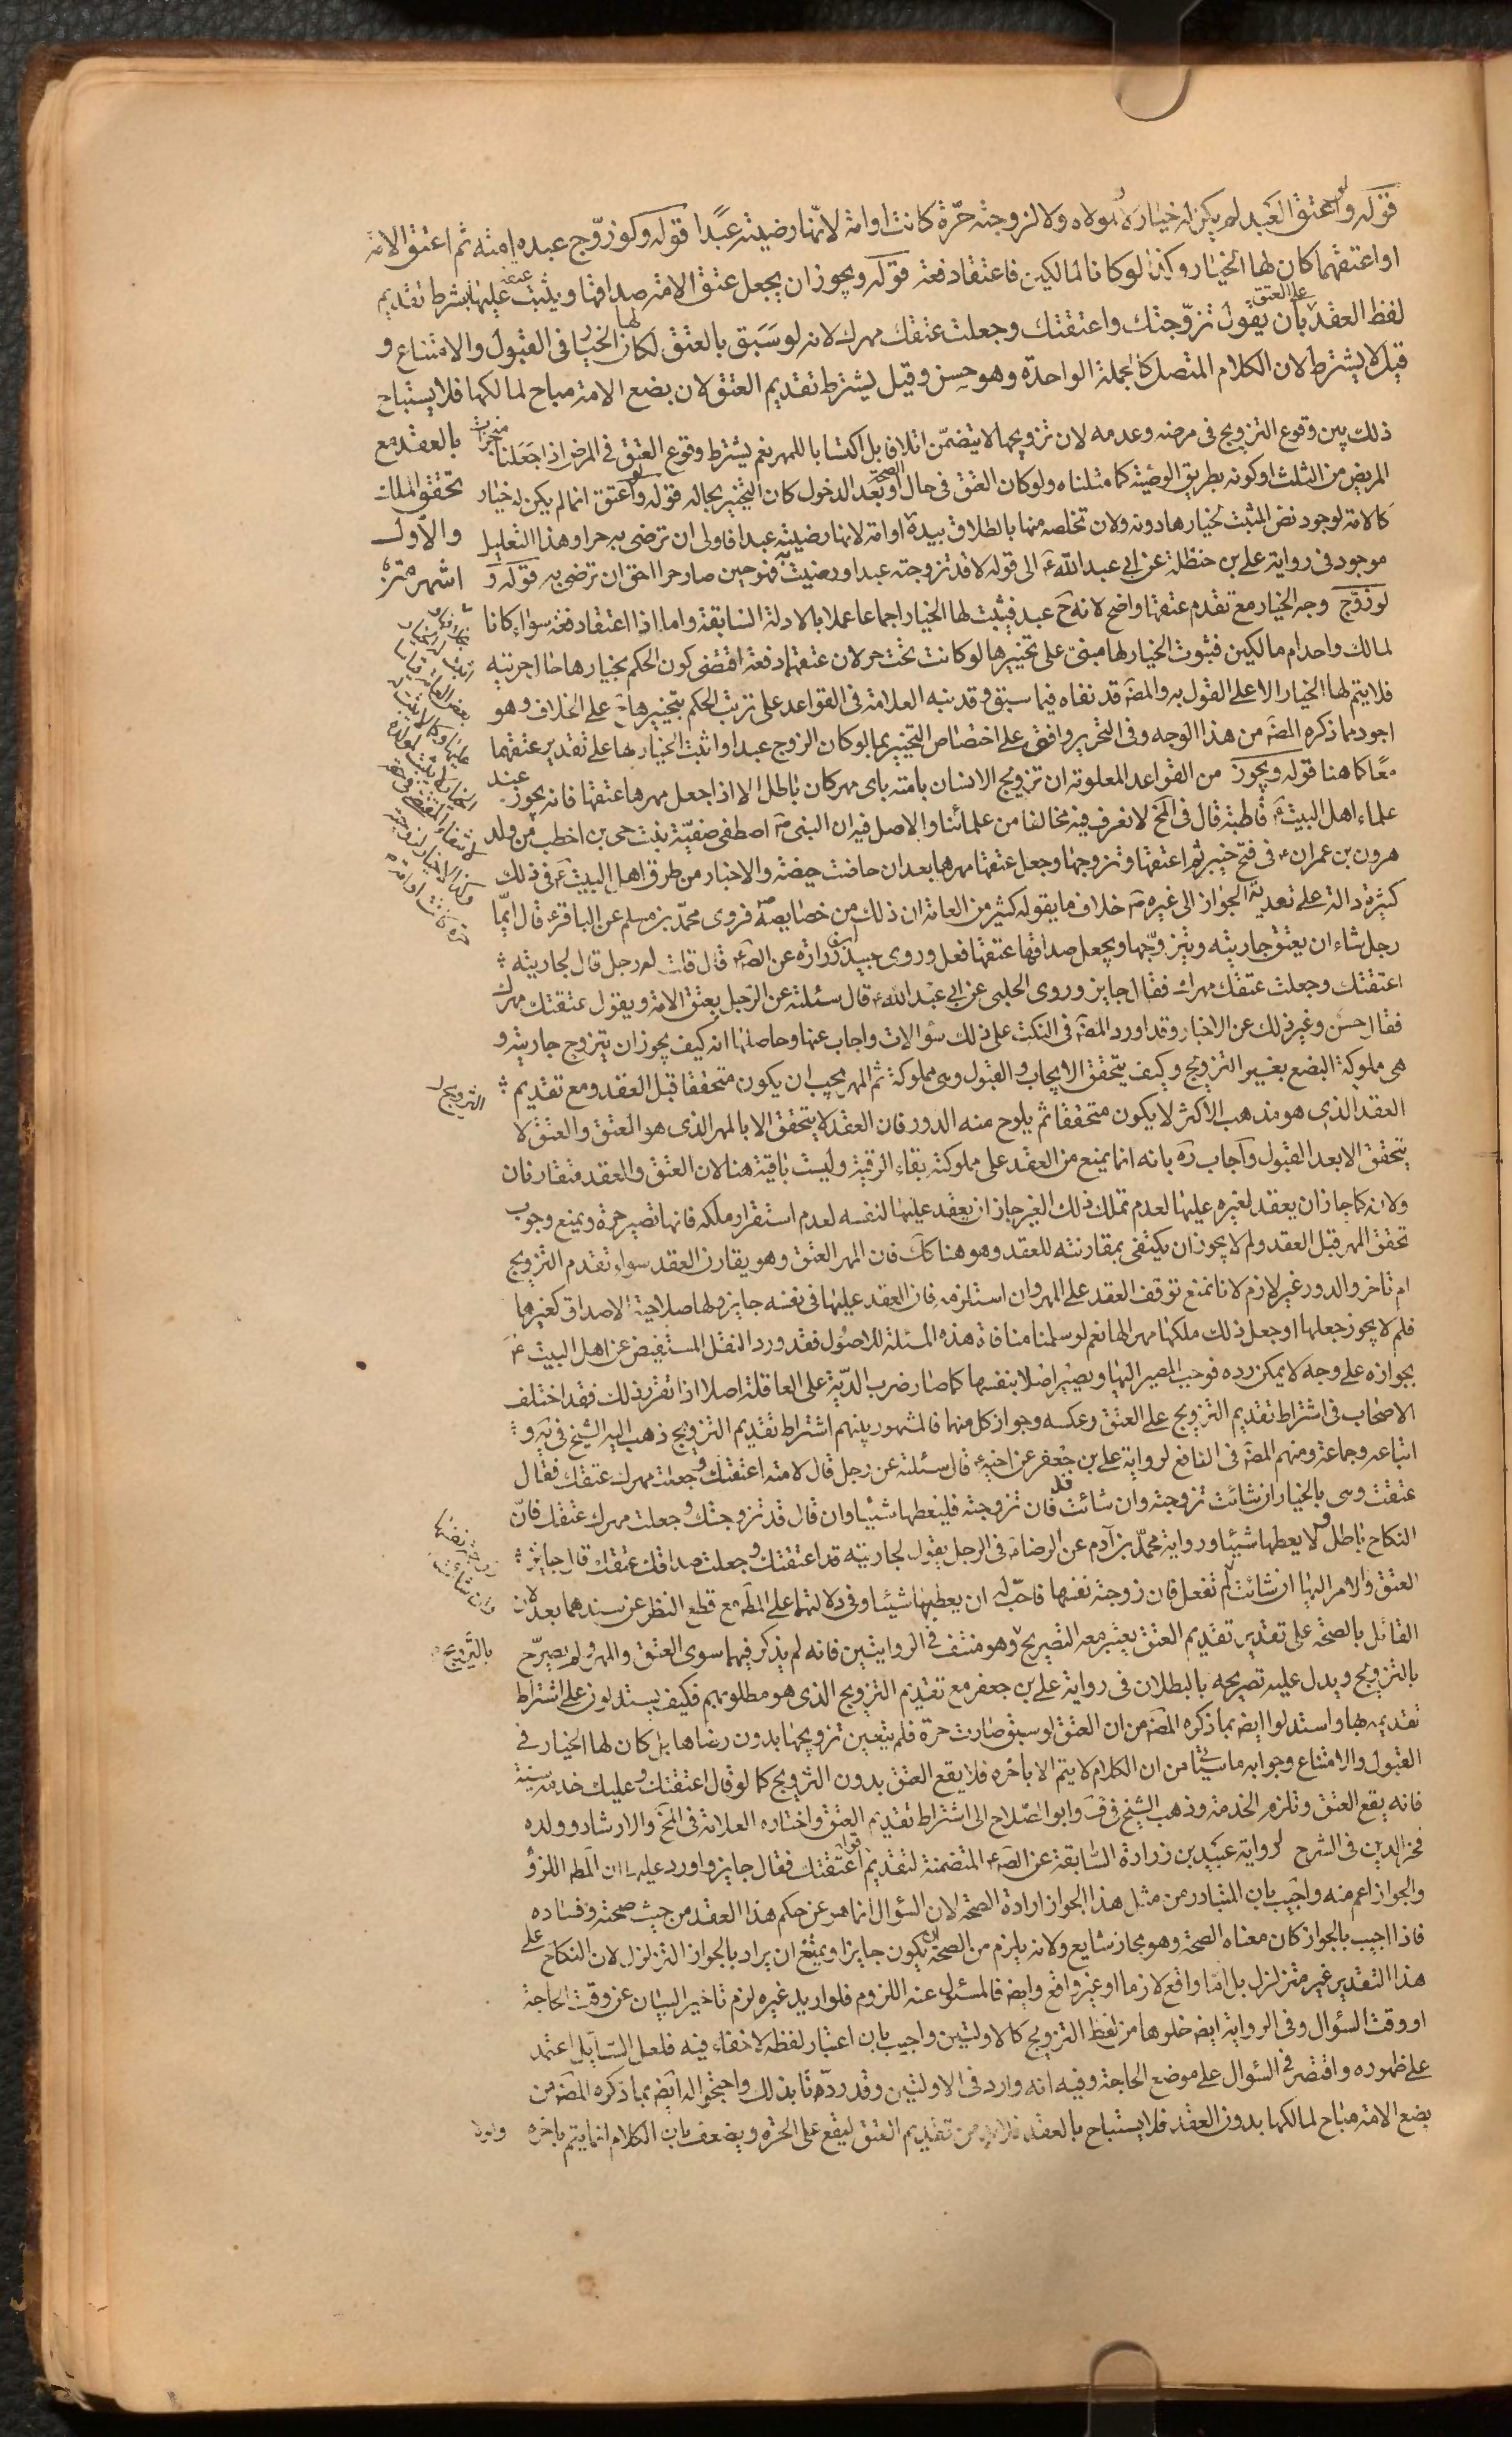 قوله ولو اعتق العبد لم يكن له خيار ولا لمولاه ولا لزوجته حرّة كانت او امة لانّها رضيته عبدًا قوله ولو زوّج عبده امته ثم اعتق الامة
او اعتقهما كان لها الخيار وكذا لو كانا لمالكين فاعتقا دفعة قوله ويجوز ان يجعل عتق الامة صداقها ويثبت عقده عليها بشرط تقديم
لفظ العقد على العتق بأن يقول تزوّجتك واعتقتك وجعلت عتقك مهرك لانه لو سَبَق بالعتق لكان لها الخيار في القبول والامتناع و
قيل لا يشترط لان الكلام المتصل كالجملة الواحدة وهو حسن وقيل يشترط تقديم العتق لان بضع الامة مباح لمالكها فلا يستباح
بالعقد مع
تحقق الملك
والأول
اشهر
ذلك بين وقوع التزويج في مرضه وعدمه لان تزويجها لا يتضمّن اتلافا بل اكتسابا للمهر نعم يشترط وقوع العتق في المرض اذا جعلنا منجزات
المريض من الثلث او كونه بطريق الوصيّة كما مثلناه ولو كان العتق في حال الصحة او بَعد الدخول كان التخيير بحاله قوله ولو اعتق انما لم يكن له خيار
كالامة لوجود نص المثبت لخيارها دونه ولان تخلصه منها بالطلاق بيده او امة لانها رضيته عبدا فاولى ان ترضى به حرا وهذا التعليل
موجود في رواية علي بن حنظلة عن ابي عبد الله ع الى قوله لا قد تزوجته عبدا ورضيت به فهو حين صار حرا احق ان ترضى به قوله و
لو زوّج وجه الخيار مع تقدم عتقها واضح لانه ح عبد فيثبت لها الخيار اجماعا عملا بالادلة السابقة واما اذا اعتقا دفعة سواء كانا
لمالك واحد ام مالكين فثبوت الخيار لها مبنىّ على تخييرها لو كانت تحت حر لان عتقهما دفعة اقتضى كون الحكم بخيارها حال حريته
فلا يتم لها الخيار الا على القول به والمصَ قد نفاه فيما سبق وقد نبه العلامة في القواعد على ترتب الحكم بتخييرها ح على الخلاف وهو
اجود مما ذكره المصَ من هذا الوجه وفى التحرير وافق على اختصاص التخيير بما لو كان الزوج عبدا واثبت الخيار لها على تقدير عتقهما
معًا كما هنا قوله ويجوز من القواعد المعلومة ان تزويج الانسان بامته باى مهر كان باطل الا اذا جعل مهرها عتقها فانه يجوز عند
علماء اهل البيت ع قاطبة قال في المخ لا نعرف فيه مخالفا من علمائنا والاصل فيه ان النبى ص اصطفى صفيّة بنت حى بن اخطب من ولد
هرون بن عمران ع في فتح خيبر ثم اعتقها وتزوجها وجعل عتقها مهرها بعد ان حاضت حيضة والاخبار من طرق اهل البيت ع في ذلك
كثيرة دالة على تعدية الجواز الى غيره ص خلاف ما يقوله كثير من العامة ان ذلك من خصايصه ص فروى محمّد بن مسلم عن الباقر ع قال ايّما
رجل شاء ان يعتق جاريته ويتزوّجها ويجعل صداقها عتقها فعل وروى عبيد بن زرارة عن الصَ ع قال قلت له رجل قال لجاريته
اعتقتك وجعلت عتقك مهرك فقال جايز وروى الحلبى عن ابى عبد الله ع قال سئلته عن الرّجل يعتق الامة ويقول عتقتك مهرك
فقال حسن وغير ذلك عن الاخبار وقد اورد المصَ في النكت على ذلك سؤالات واجاب عنها وحاصلها انه كيف يجوز ان يتزوج جاريته و
هى مملوكة البضع بغير التزويج وكيف يتحقق الايجاب والقبول وهى مملوكة ثم المهر يجب ان يكون متحققا قبل العقد ومع تقديم
التزويج
العقد الذى هو مذهب الاكثر لا يكون متحققا ثم يلوح منه الدور فان العقد لا يتحقق الا بالمهر الذى هو العتق والعتق لا
يتحقق الا بعد القبول وأجاب رَه بانه انما يمنع من العقد على مملوكته بقاء الرقية وليست باقية هنا لان العتق والعقد متقارنان
ولانه كما جاز ان يعقد لغيره عليها لعدم تملك ذلك الغير جاز ان يعقد عليها لنفسه لعدم استقرار ملكه فانها تصير حرة ويمنع وجوب
تحقق المهر قبل العقد ولم لا يجوز ان يكتفى بمقارنته للعقد وهو هنا كك فان المهر العتق وهو يقارن العقد سواء تقدم التزويج
ام تاخر والدور غير لازم لانا نمنع توقف العقد على المهر وان استلزمه فان العقد عليها في نفسه جايز ولها صلاحية الاصداق كغيرها
فلم لا يجوز جعلها او جعل ذلك ملكها مهرا لها نعم لو سلمنا منافاة هذه المسئلة للاصُول فقد ورد النقل المستفيض عن اهل البيت ع
بجوازه على وجه لا يمكن رده فوجب المصير اليها ويصير اصلا بنفسها كما صار ضرب الدّية على العاقلة اصلا اذا تقرر ذلك فقد اختلف
الاصحاب في اشتراط تقديم التزويج على العتق وعكسه وجواز كل منهما فالمشهور بينهم اشتراط تقديم التزويج ذهب اليه الشيخ في يَه و
اتباعه وجماعة ومنهم المصَ فى النافع لرواية على بن جعفر عن اخيه ع قال سئلته عن رجل قال لامته اعتقتك وجعلت مهرك عتقك فقال
عتقت وهى بالخيار ان شائت تزوجته وان شائت فلا فان تزوجته فليعطها شيئا وان قال قد تزوجتك وجعلت مهرك عتقك فانّ
النكاح باطل ولا يعطها شيئا ورواية محمّد بن آدم عن الرضا ع فى الرجل يقول لجاريته قد اعتقتك وجعلت صداقك عتقك قال جايز
العتق والامر اليها ان شائت لم تفعل فان زوجته نفسها فاحب له ان يعطيها شيئا وفى دلالتهما على المطَ مع قطع النظر عن سندهما بعد لان
القائل بالصحّة على تقدير تقديم العتق يعتبر معه التصريح وهو منتف في الروايتين فانه لم يذكر فيهما سوى العتق والمهر ولم يصرّح
بالتزويج
بالتزويج ويدل عليه تصريحه بالبطلان فى رواية على بن جعفر مع تقديم التزويج الذى هو مطلوبهم فكيف يستدلون على اشتراط
تقديمه بها واستدلوا ايضَ بما ذكره المصَ من ان العتق لو سبق صارت حرة فلم يتعين تزويجها بدون رضاها بل كان لها الخيار في
القبول والامتناع وجوابه ما سيأتى من ان الكلام لا يتم الا بأخره فلا يقع العتق بدون التزويج كما لو قال اعتقتك وعليك خدمة سنة
فانه يقع العتق وتلزم الخدمة وذهب الشيخ في ف وابوا الصّلاح الى اشتراط تقديم العتق واختاره العلامة فى المخ والارشاد وولده
فخر الدين فى الشرح لرواية عبيد بن زرارة السّابقة عن الصَ ع المتضمنة لتقديم قوله اعتقتك فقال جايز واورد عليها ان المط اللزوم
والجواز اعم منه واجيب بان المتبادر من مثل هذا الجواز ارادة الصحة لان السؤال انما هو عن حكم هذا العقد من حيث صحته وفساده
فاذا اجيب بالجواز كان معناه الصحة وهو مجاز شايع ولانه يلزم من الصحة ان يكون جايزا ويمتنع ان يراد بالجواز التزلزل لان النكاح على
هذا التقدير غير متزلزل بل امّا واقع لازما او غير واقع وايضَ فالمسئول عنه اللزوم فلو اريد غيره لزم تاخير البيان عن وقت الحاجة
او وقت السؤال وفى الرواية ايضَ خلوها من لفظ التزويج كالاولتين واجيب بان اعتبار لفظه لا خفاء فيه فلعل السّايل اعتمد
على ظهوره واقتصر في السؤال على موضع الحاجة وفيه انه وارد فى الاولتين وقد ردّتا بذلك واحتجّوا له ايضَ بما ذكره المصَ من
بضع الامة مباح لمالكها بدون العقد فلا يستباح بالعقد فلا بد من تقديم العتق ليقع على الحرة ويضعف بان الكلام انما يتم باخره